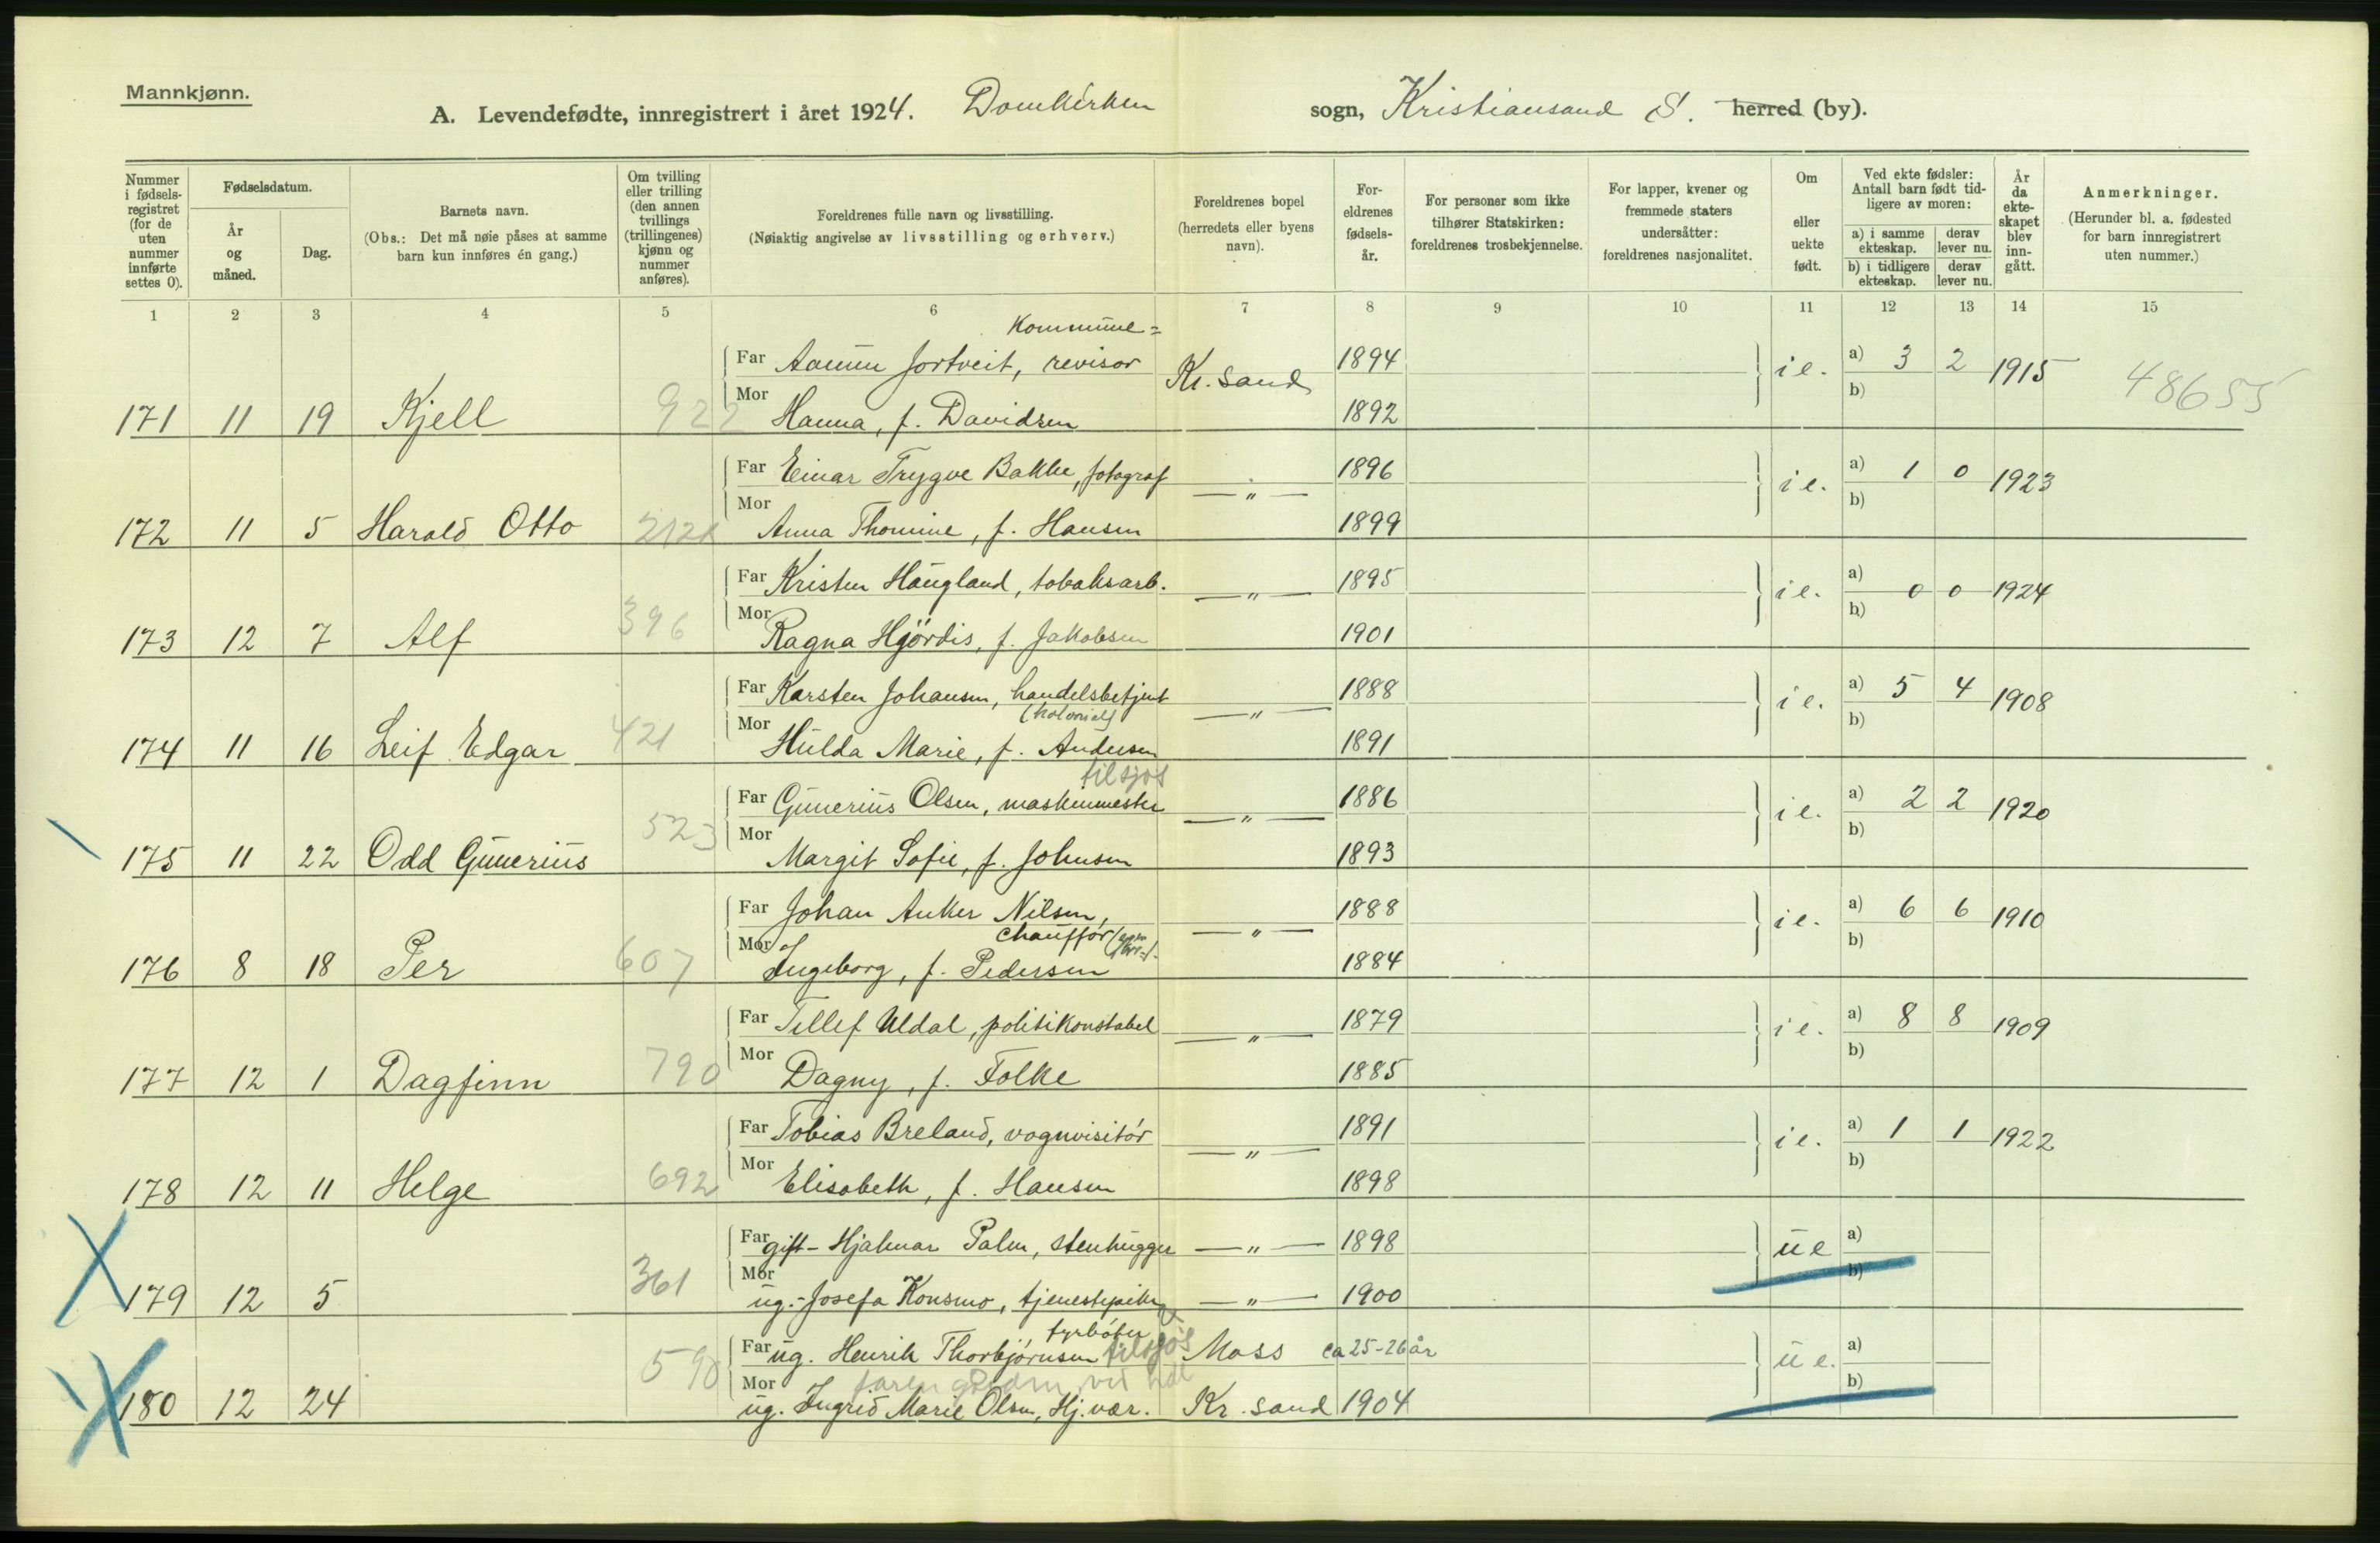 Mannkjønn.
A. Levendefødte, innregistrert i året 1924. Domkirken sogn, Kristiansand S. herred (by).
Nummer i fødsels-registret (for de uten nummer innførte settes 0).
Fødselsdatum.
År og måned.
Dag.
Barnets navn.
(Obs.: Det må nøie påses at samme barn kun innføres én gang.)
Om tvilling eller trilling (den annen tvillings (trillingenes) kjønn og nummer anføres).
Foreldrenes fulle navn og livsstilling.
(Nøiaktig angivelse av livsstilling og erhverv.)
Foreldrenes bopel (herredets eller byens navn).
For-eldrenes fødsels-år.
For personer som ikke tilhører Statskirken: foreldrenes trosbekjennelse.
For lapper, kvener og fremmede staters undersåtter: foreldrenes nasjonalitet.
Om eller uekte født.
Ved ekte fødsler: Antall barn født tid-ligere av moren:
a) i samme ekteskap. derav lever nu.
b) i tidligere ekteskap. derav lever nu.
År da ekte-skapet blev inn-gått.
Anmerkninger.
(Herunder bl. a. fødested for barn innregistrert uten nummer.)
1 2 3 4 5 6 7 8 9 10 11 12 13 14 15
Kommune=
Far Aamun Jortveit, revisor Kr. Sand 1894 i e. a) 3 2 1915 48655
171 11 19 Kjell 922 Mor Hanna, f. Davidsen 1892 b)
Far Einar Trygve Bakke, fotograf — " — 1896 i e. a) 1 0 1923
172 11 5 Harald Otto 2121 Mor Anna Thomine, f. Hansen 1899 b)
Far Kristen Haugland, tobaksarb. — " — 1895 i e. a) 0 0 1924
173 12 7 Alf 396 Mor Ragna Hjördis, f. Jakobsen 1901 b)
Far Karsten Johansen, handelsbetjent — " — 1888 i e. a) 5 4 1908
(kolonial)
174 11 16 Leif Edgar 421 Mor Hulda Marie, f. Andersen 1891 b)
tilsjøs
Far Gunerius Olsen, maskinmester — " — 1886 i e. a) 2 2 1920
175 11 22 Odd Gunerius 523 Mor Margit Sofie, f. Johnsen 1893 b)
Far Johan Anker Nilsen, — " — 1888 i e. a) 6 6 1910
chauffør
176 8 18 Per 607 Mor Ingeborg, f. Pedersen 1884 b)
Far Tellef Uldal, politikonstabel — " — 1879 i e. a) 8 8 1909
177 12 1 Dagfinn 790 Mor Dagny, f. Folke 1885 b)
Far Tobias Breland, vognvisitør — " — 1891 i e. a) 1 1 1922
178 12 11 Helge 692 Mor Elisabeth, f. Hansen 1898 b)
Far gift - Hjalmar Palm, stenhugger — " — 1898 u e a)
179 12 5 361 Mor ug. - Josefa Konsmo, tjenestepike — " — 1900 b)
fyrbøter
Far ug. Henrik Thorbjørnsen tilsjøs Moss ca 25-26 år u e. a)
180 12 24 590 Mor ug. Ingrid Marie Olsen, Hj.vær. Kr. sand 1904 b)